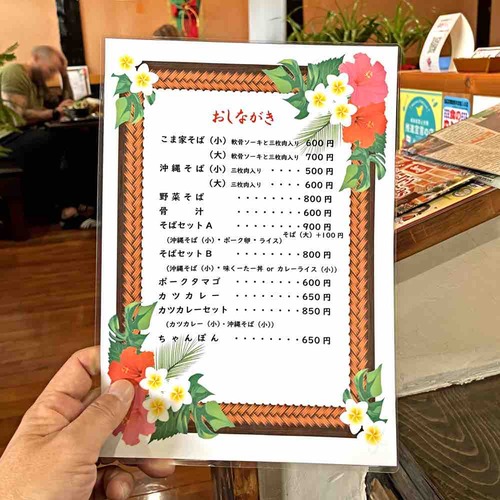 おしながき
こま家そば（小） 軟骨ソーキと三枚肉入り 600円
（大） 軟骨ソーキと三枚肉入り 700円
沖縄そば（小） 三枚肉入り ・・・・ 500円
（大） 三枚肉入り ・・・・ 600円
野菜そば ・・・・・・・・ 800円
骨汁 ・・・・・・・・ 600円
そばセットA ・・・・・・・・ 900円
そば（大）+100円
（沖縄そば（小）・ポーク卵・ライス）
そばセットB ・・・・・・・・ 800円
（沖縄そば（小）・味くーたー丼 or カレーライス（小））
ポークタマゴ ・・・・・・・・ 600円
カツカレー ・・・・・・・・ 650円
カツカレーセット ・・・・・・・・ 850円
（カツカレー（小）・沖縄そば（小））
ちゃんぽん ・・・・・・・・ 650円